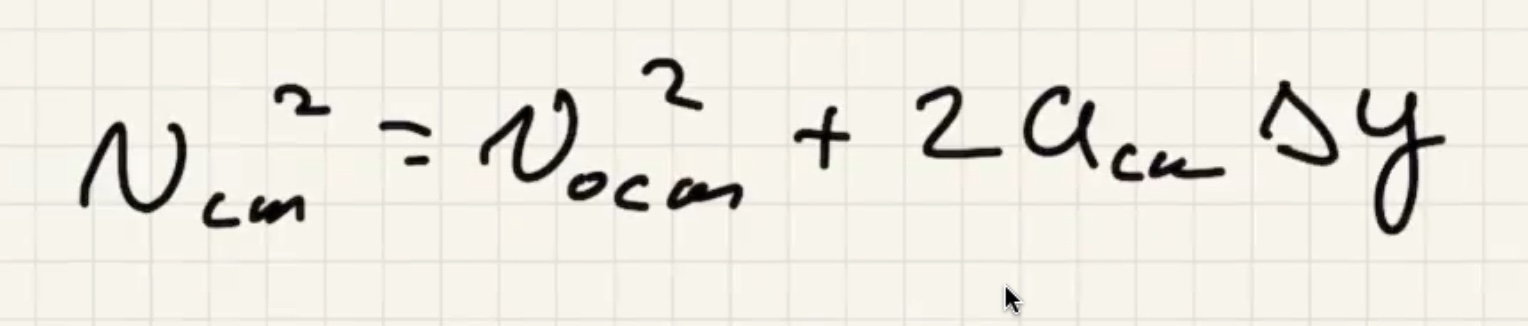 v_{cm}^2 = v_{0cm}^2 + 2 a_{cm} Δy